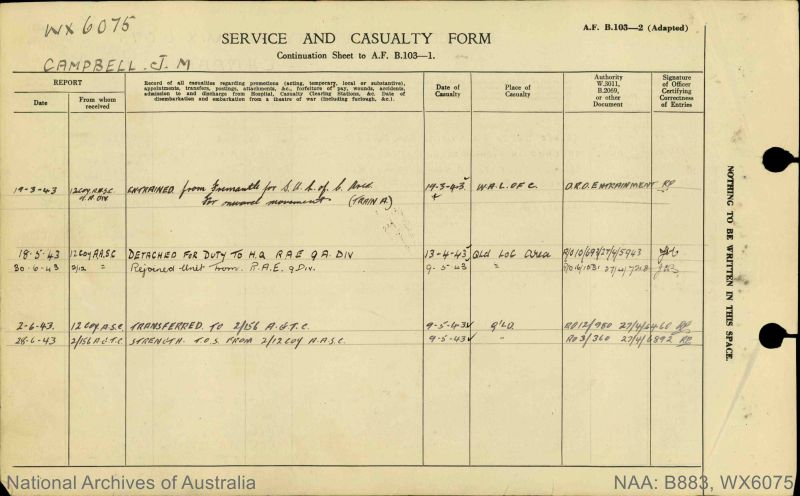 WX6075
A.F. B.103—2 (Adapted)
SERVICE AND CASUALTY FORM
Continuation Sheet to A.F. B.103—1.
CAMPBELL. J. M
REPORT
Date
From whom received
Record of all casualties regarding promotions (acting, temporary, local or substantive), appointments, transfers, postings, attachments, &c., forfeiture of pay, wounds, accidents, admission to and discharge from Hospital, Casualty Clearing Stations, &c. Date of disembarkation and embarkation from a theatre of war (including furlough, &c.).
Date of Casualty
Place of Casualty
Authority W.3011, B.2069, or other Document
Signature of Officer Certifying Correctness of Entries
19-3-43 12 COY. A.A.S.C. DIV ENTRAINED from Fremantle for S.A. L. of C. Area 19-3-43 W.A. L. OF C. ENTRAINMENT
For onward movement (TRAIN A)
18-5-43 12 COY A.A.S.C DETACHED FOR DUTY TO H.Q R A E 9 A. DIV 13-4-43 Qld LofC Area
30-6-43 2/12 " Rejoined Unit from R.A.E. 9 Div. 9-5-43 "
2-6-43. 12 COY A.S.C. TRANSFERRED TO 2/156 A.G.T.C. 9-5-43 Q'LD RO 12/980 27/4/5460
28-6-43 2/156 A.G.T.C. STRENGTH T.O.S. FROM 2/12 COY A.A.S.C. 9-5-43 " RO 3/360 27/4/6892
NOTHING TO BE WRITTEN IN THIS SPACE.
National Archives of Australia
NAA: B883, WX6075